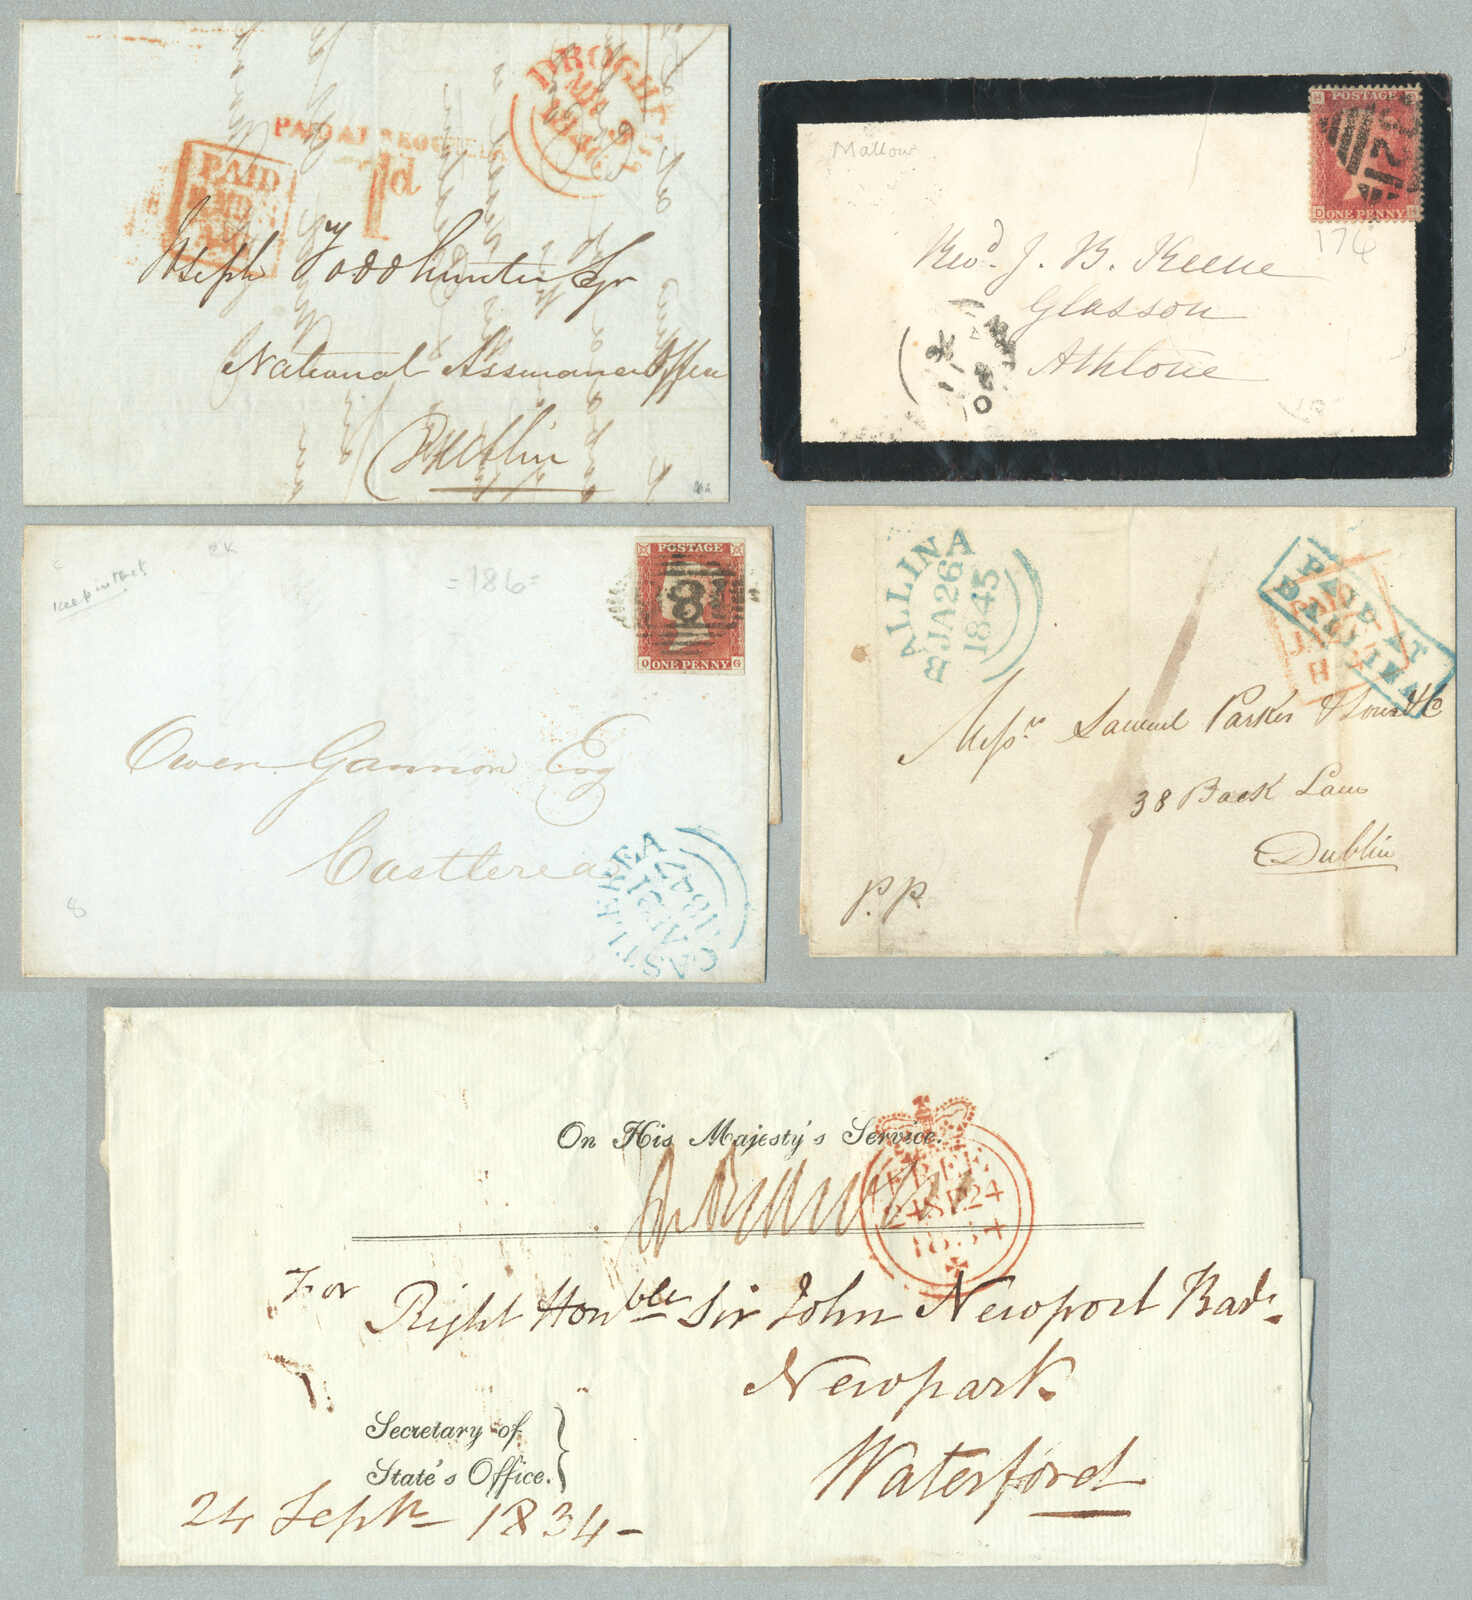 DROGHEDA
PAID AT DROGHEDA
1d
PAID
Joseph Todhunter Jr
National Assurance Office
Dublin
Mallow
POSTAGE
ONE PENNY
D
H
176
Revd. J. B. Keene
Glasson
Athlone
keep intact
RK
=186=
POSTAGE
8
O ONE PENNY G
Owen Gannon Esq
Castlerea
CASTLEREA
1847
8
BALLINA
JA 26
1845
PAID AT
BALLINA
PAID
Messrs Samuel Parker & Sons & Co
38 Back Lane
Dublin
P.P.
On His Majesty's Service.
FREE
24 SP 24
1834
For
Right Honble Sir John Newport Bart.
Newpark
Waterford
Secretary of
State's Office.
24 Septr 1834